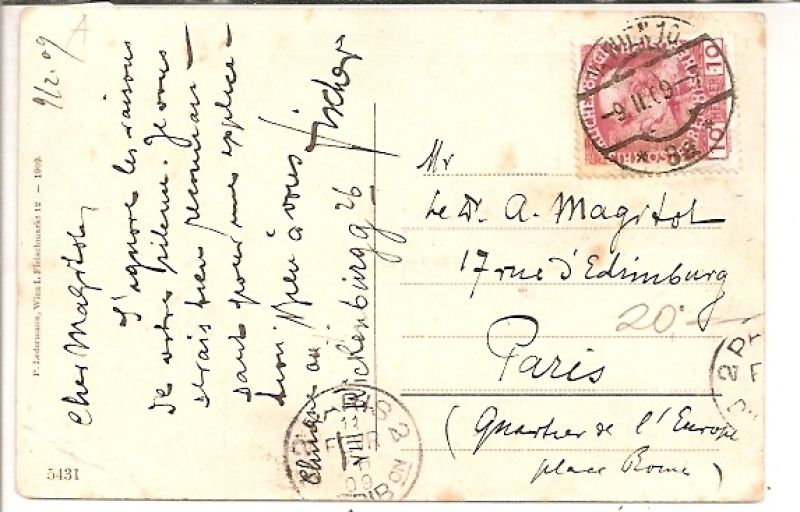 9/2.09
Cher Magitot,
J'ignore les raisons
de votre silence. Je vous
serais bien reconnais-
sant pour une explica-
tion Bien à vous Fischer
Clinique
26
P. Ledermann, Wien I. Fleischmarkt 12 — 1909.
5431
WIEN 10
-9.II.09-
* 8a *
10 10
Mr
Le Dr. A. Magitot
17 rue d'Edimburg
Paris
(Quartier de l'Europe
place Rome)
20.—
PARIS 2
VIII
09